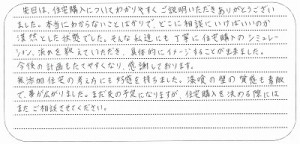 先日は、住宅購入についてわかりやすくご説明いただきありがとうござい
ました。本当にわからないことばかりで、どこに相談にいけばいいのか
漠然とした状態でした。そんな私達にも丁寧に住宅購入のシミュレー
ション、決め方を教えていただき、具体的にイメージすることが出来ました。
今後の計画もたてやすくなり、感謝しております。
無添加住宅の考え方にも好感を持ちました。漆喰の壁の質感も素敵
で、夢が広がりました。まだ先の予定になりますが、住宅購入を決める際には
またご相談させてください。